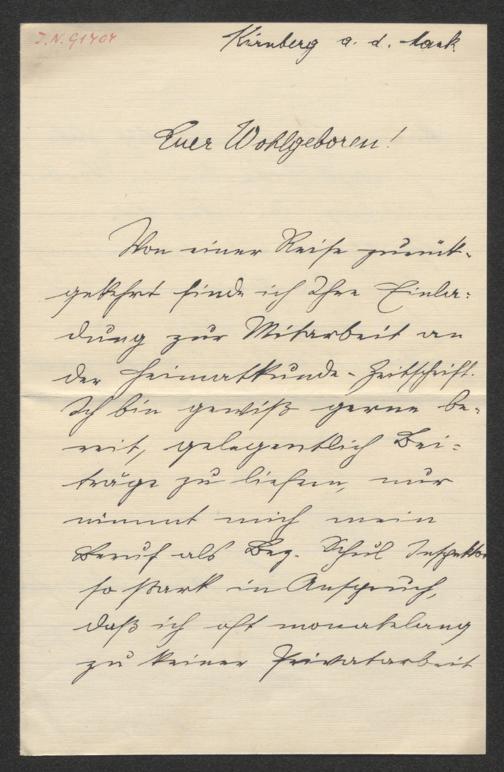 J.N. 91707
Kirnberg a. d. Mank
Euer Wohlgeboren!
Von einer Reise zurück-
gekehrt finde ich Ihre Einla-
dung zur Mitarbeit an
der Heimatkunde-Zeitschrift.
Ich bin gewiß gerne be-
reit, gelegentlich Bei-
träge zu liefern, nur
nimmt mich mein
Beruf als Bez. Schul Inspektor
so stark in Anspruch,
daß ich oft monatelang
zu keiner Privatarbeit